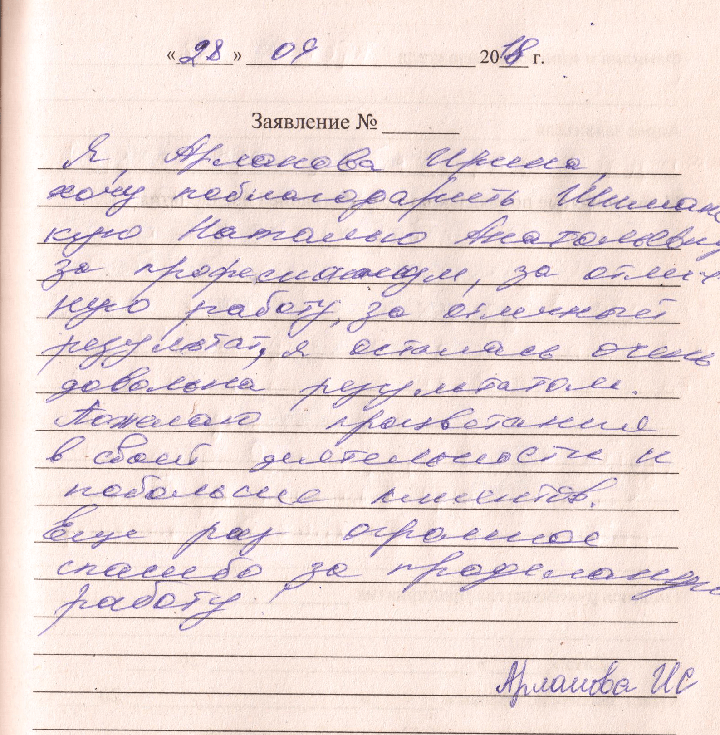 «28» 09 2018 г.
Заявление №
Я, Арланова Ирина,
хочу поблагодарить Шиман
кую Наталью Анатольевну
за професионализм, за отлич
ную работу, за отличный
результат, я осталась очень
довольна результатом.
Пожелаю процветания
в своей деятельности и
побольше клиентов.
Еще раз огромное
спасибо за проделанную
работу
Арланова ИС